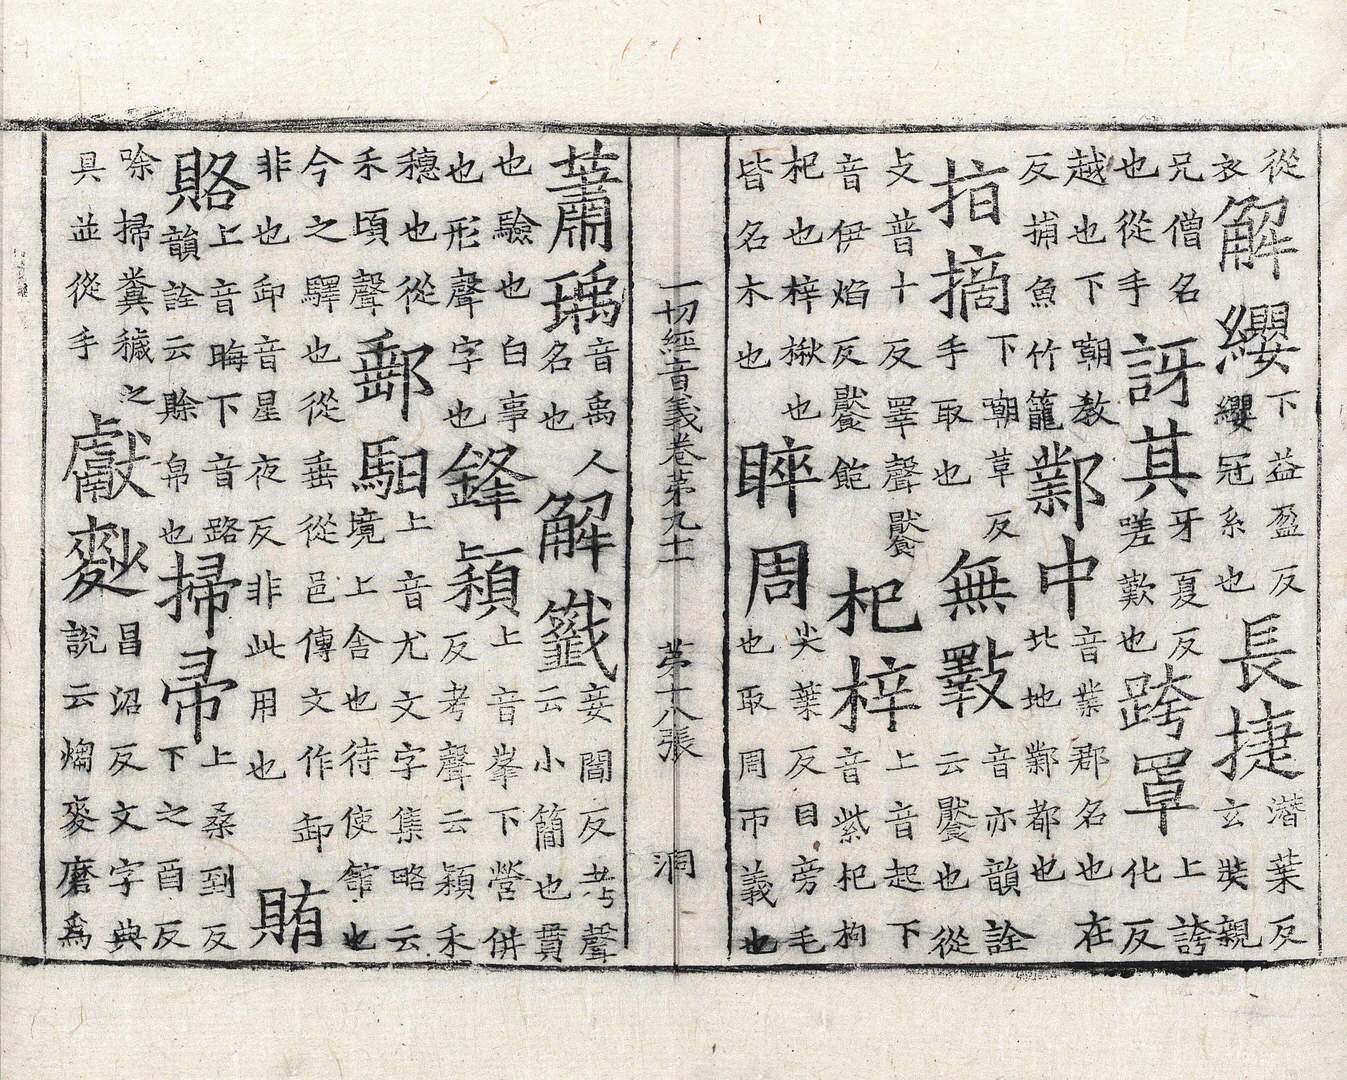 從衣解纓下益盈反纓冠系也長捷潛葉反玄奘親
兄僧名也從手訝其牙夏反嗟歎也跨罩上誇化反
越也下嘲教反捕魚竹籠鄴中音業郡名也在北地鄴都也
指摘下嘲革反手取也無斁音亦韻詮云饜也從
攴普十反睪聲饜音伊焰反饜飽杞梓上音起下音紫杞枸
杞也梓楸也皆名木也睟周尖葉反目旁毛也取周帀義也
一切經音義卷第九十一 第十八張 洞
蕭瑀音禹人名也解籤妾閻反考聲云小簡也貫
也驗也白事也形聲字也鋒穎上音峯下營併反考聲云穎禾
穗也從禾頃聲郵馹上音尤文字集略云境上舍也待使館也
今之驛也從垂從邑傳文作卸非也卸音星夜反非此用也賄
賂上音晦下音路韻詮云賒帛也掃帚上桑到反下之酉反
除掃糞穢之具並從手獻麨昌沼反文字典說云熵麥磨爲